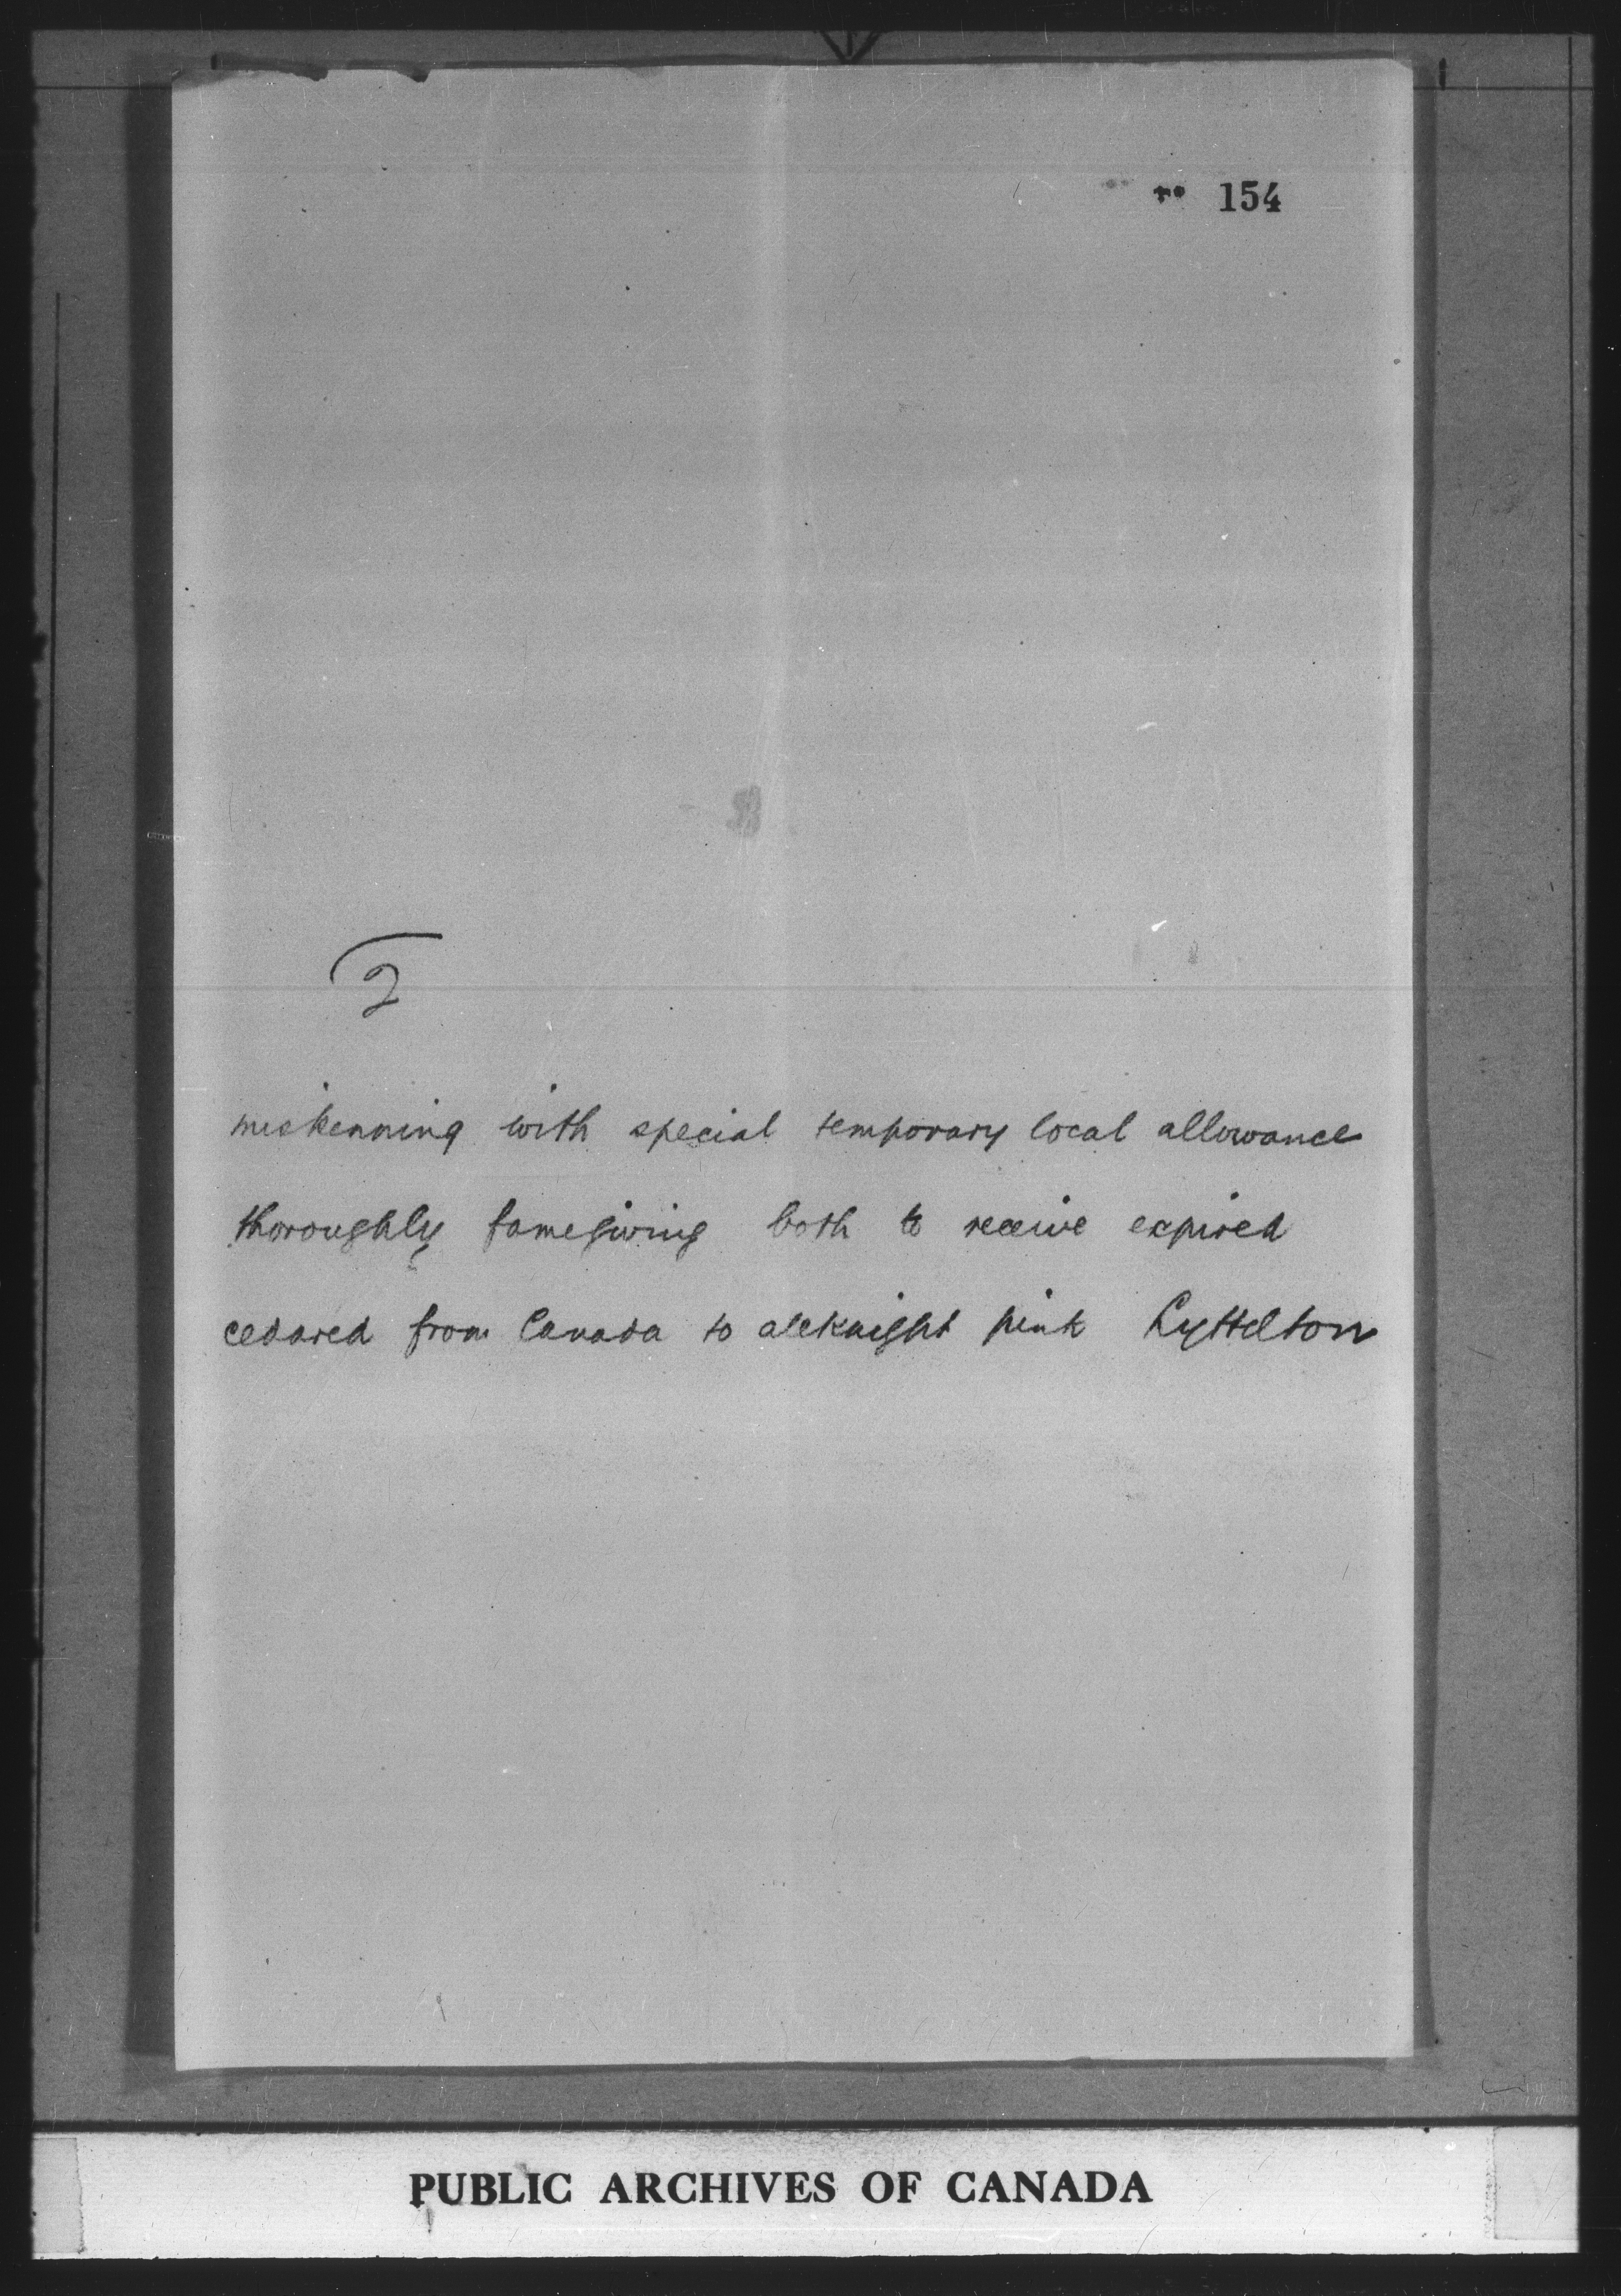 154
2
miskenning with special temporary local allowance
thoroughly famegiving both to receive expired
cedared from Canada to aleknight pink Lyttelton
PUBLIC ARCHIVES OF CANADA